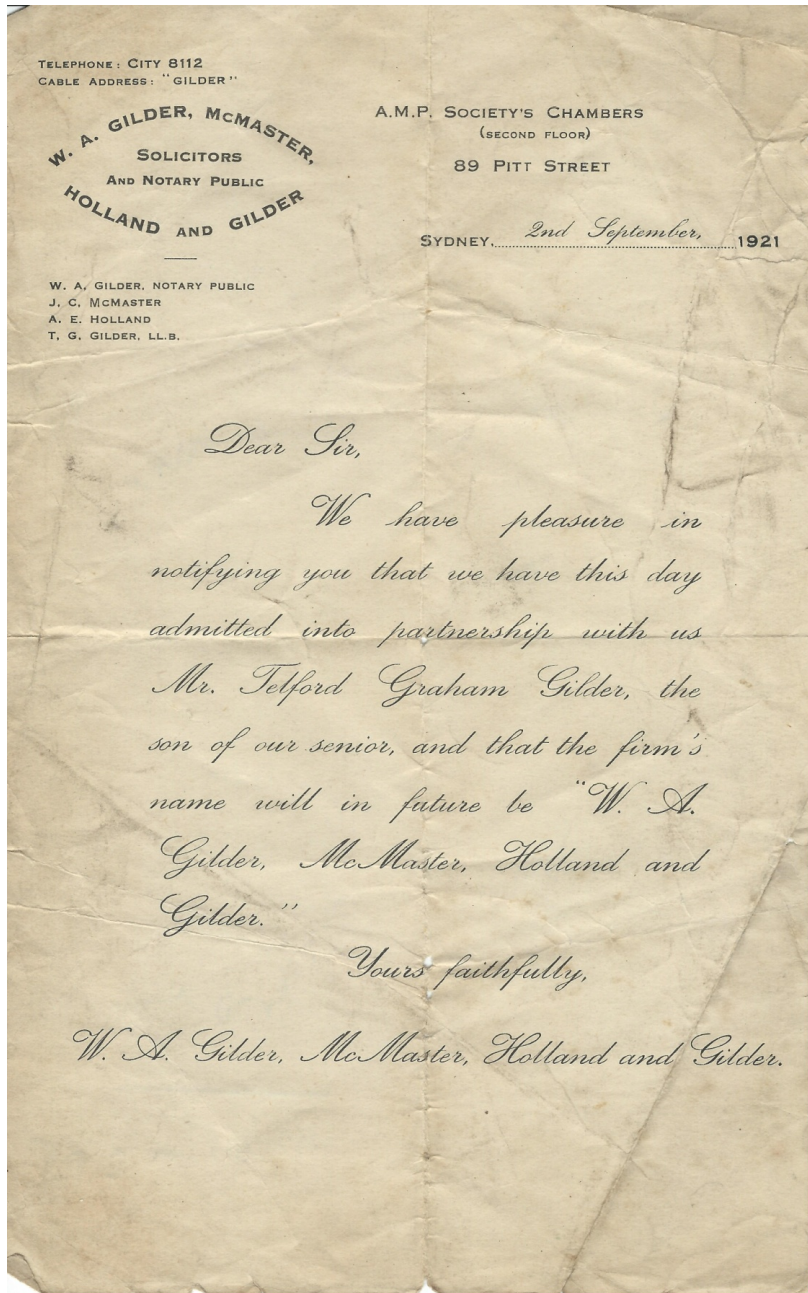 TELEPHONE: CITY 8112
CABLE ADDRESS: "GILDER"
W. A. GILDER, MCMASTER,
SOLICITORS
AND NOTARY PUBLIC
HOLLAND AND GILDER
W. A. GILDER, NOTARY PUBLIC
J. C. MCMASTER
A. E. HOLLAND
T. G. GILDER, LL.B.
A.M.P. SOCIETY'S CHAMBERS
(SECOND FLOOR)
89 PITT STREET
SYDNEY, 2nd September, 1921
Dear Sir,
We have pleasure in
notifying you that we have this day
admitted into partnership with us
Mr. Telford Graham Gilder, the
son of our senior, and that the firm's
name will in future be "W. A.
Gilder, McMaster, Holland and
Gilder."
Yours faithfully,
W. A. Gilder, McMaster, Holland and Gilder.